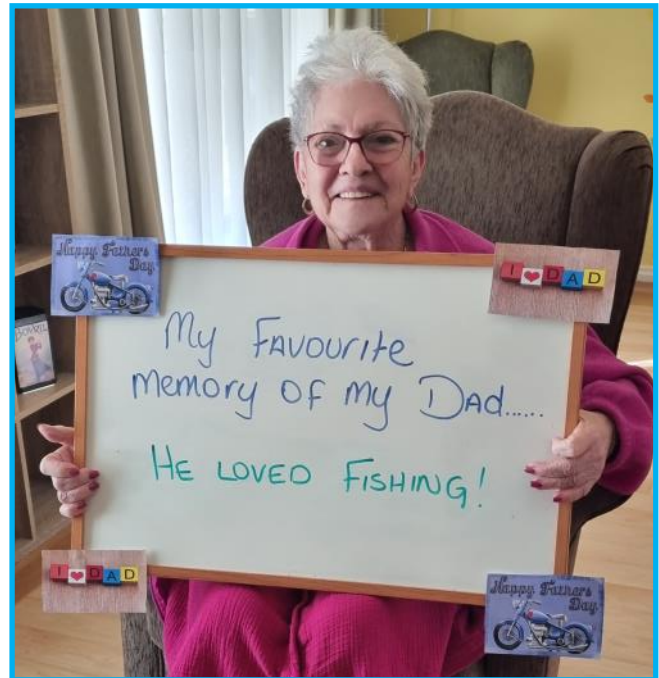 Happy Fathers
Day
I ❤ DAD
My FAVOURITE
memory OF my DAD......
HE LOVED FISHING!
BOVRIL
I ❤ DAD
Happy Fathers
Day